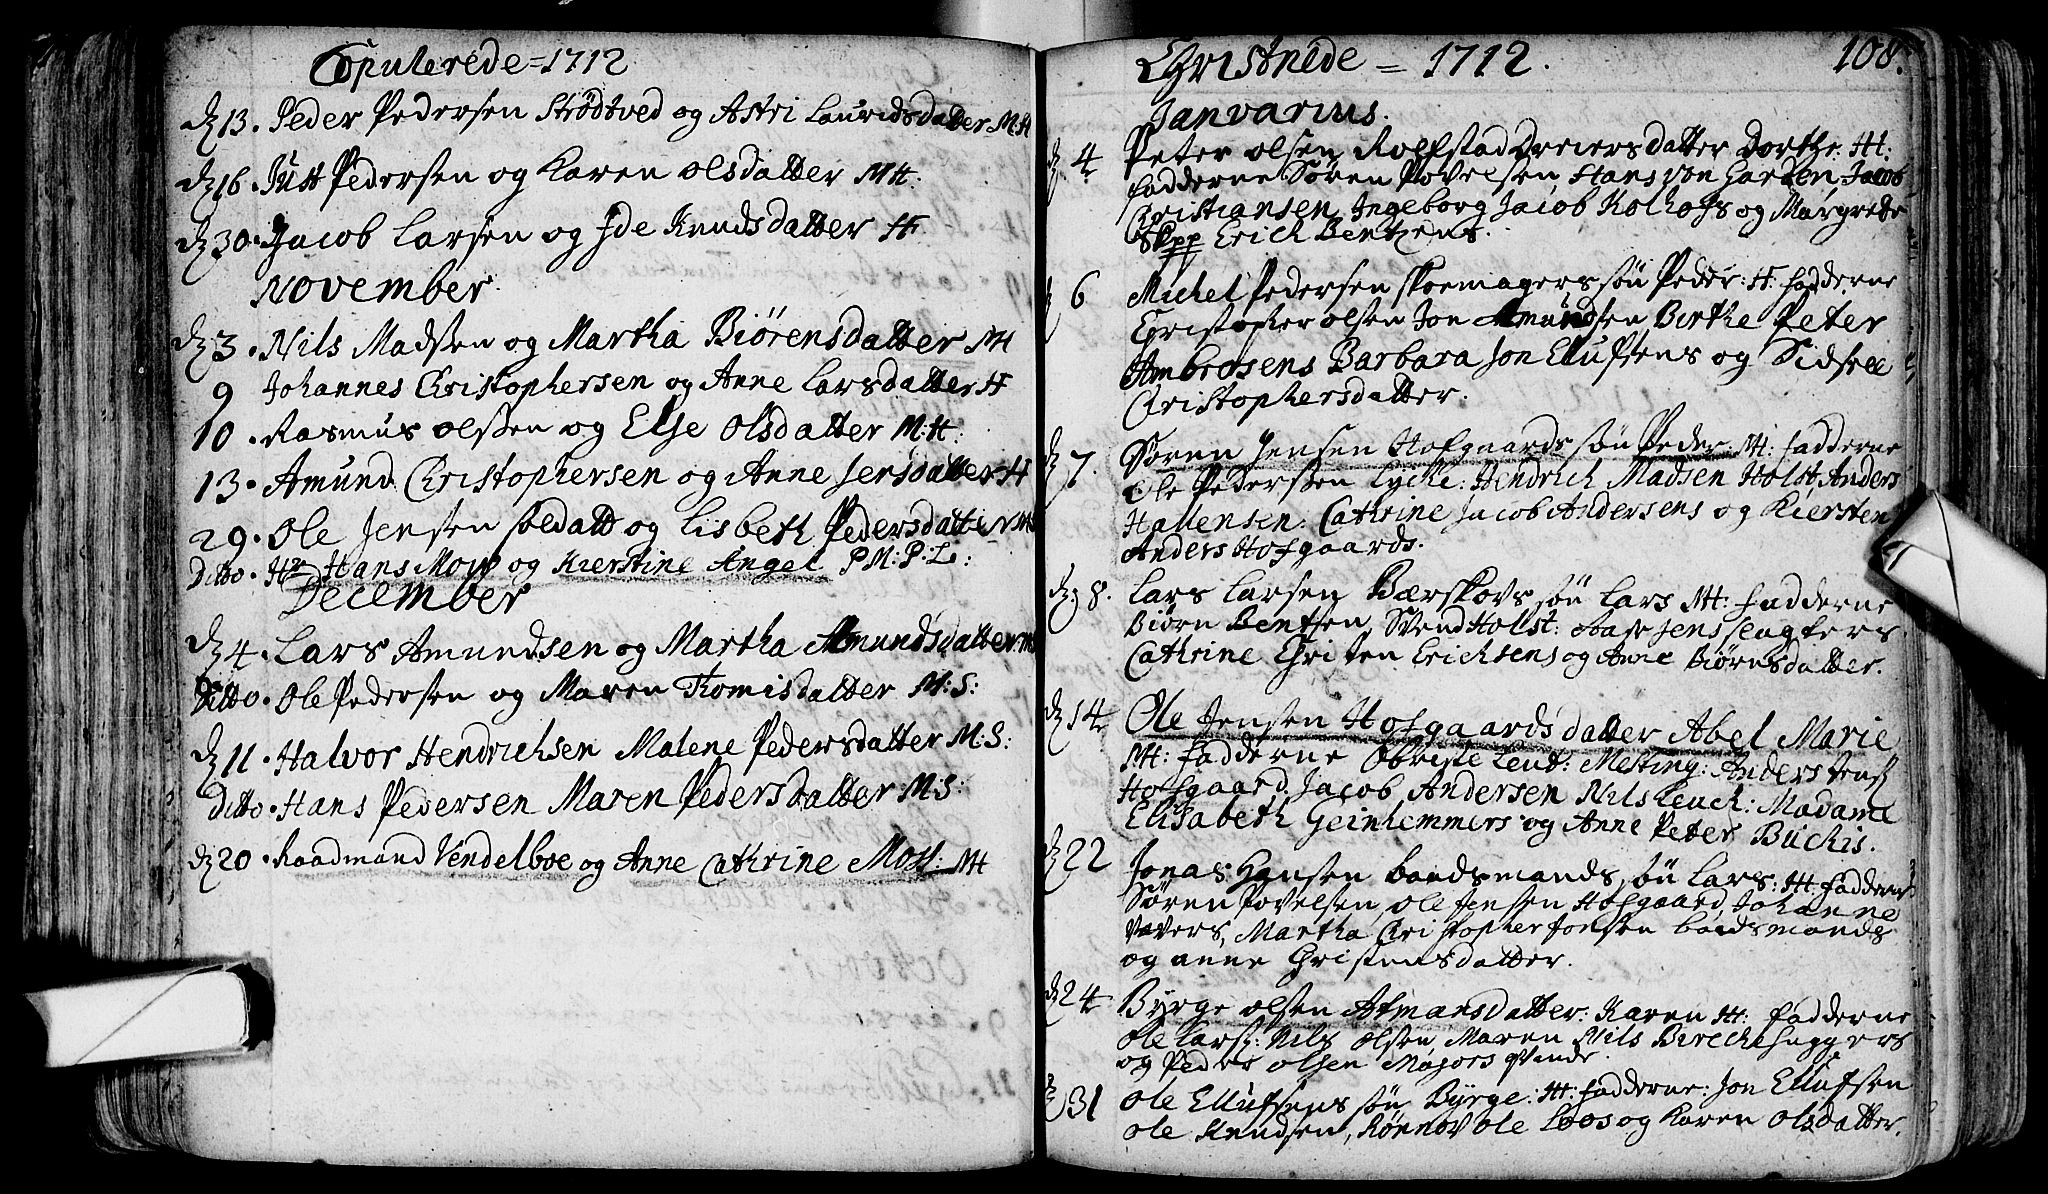 Copulerede = 1712
d 13. Peder Pedersen Strödtved og Astri Lauridsdatter M H
d 16. Just Pedersen og Karen Olsdatter M H.
d 30. Jacob Larsen og Ide Knudsdatter H
November
d 3. Nils Madsen og Martha Biörensdatter M H
9 Johannes Christophersen og Anne Larsdatter H
10. Rasmus Olssen og Else Olsdatter M:H:
13. Amund Christophersen og Anne Jersdatter H
29. Ole Jensen soldatt og Lisbeth Pedersdatter
Ditto. Hr Hans og Kierstine Angel P M: P: L:
December
d 4. Lars Amundsen og Martha Amundsdatter
Ditto. Ole Pedersen og Maren Tomisdatter M: S:
d 11. Halvor Hendrichsen Malene Pedersdatter M: S:
Ditto. Hans Pedersen Maren Pedersdatter M: S:
d 20. Raadmand Vendelboe og Anne Cathrine Moss: M H
Christnede = 1712. 108.
Januarius.
d 4 Peter Olsen Rolfstad Dreiers datter Dorthe: H:
fadderne Sören Povelsen, Hans von Garden, Jacob
Christiansen, Ingeborg Jacob Kolhofs og Margrete
Skpp Erich Bentzens.
d 6 Michel Pedersen skomagers sön Peder: H: fadderne
Christopher Olsen Jon Amundsen Birthe Peter
Ambrosens Barbara Jon Ellufsens og Sidsel
Christophersdatter.
d 7. Sören Jensen Hofgaards sön Peder. M: fadderne
Ole Pederssen Lycke: Hendrich Madsen Holst Anders
Hallensen. Cathrine Jacob Andersens og Kiersten
Anders Hofgaards.
d 8. Lars Larsen Bærskovs sön Lars M: fadderne
Biörn Bentsen, Svend Holst: Aase Jens slagters
Cathrine Christen Erichsens og Anne Biörnsdatter.
d 14 Ole Jensen Hofgaards datter Abel Marie
M: fadderne Obriste Leut: Mesting: Anders Jens:
Hofgaard, Jacob Andersen Nils Leuch: Madame
Elisabeth Geinhemmers og Anne Peter Buchis.
d 22 Jonas Hansen baadsmands sön Lars: H: fadderne
Sören Povelsen, Ole Jensen Hofgaard, Johanne
Vævers, Martha Christopher Jonsen baadsmands
og Anne Christensdatter.
d 24 Byrge Olsen Asmans datter: Karen H: fadderne
Ole Lars: Nils Olsen Maren Nils Birchehuggers
og Peder Olsen Majors qvinde.
d 31 Ole Ellufsens sön Byrge: H: fadderne: Jon Ellufsen
Ole Knudsen, Rönnov Ole Loos og Karen Olsdatter.